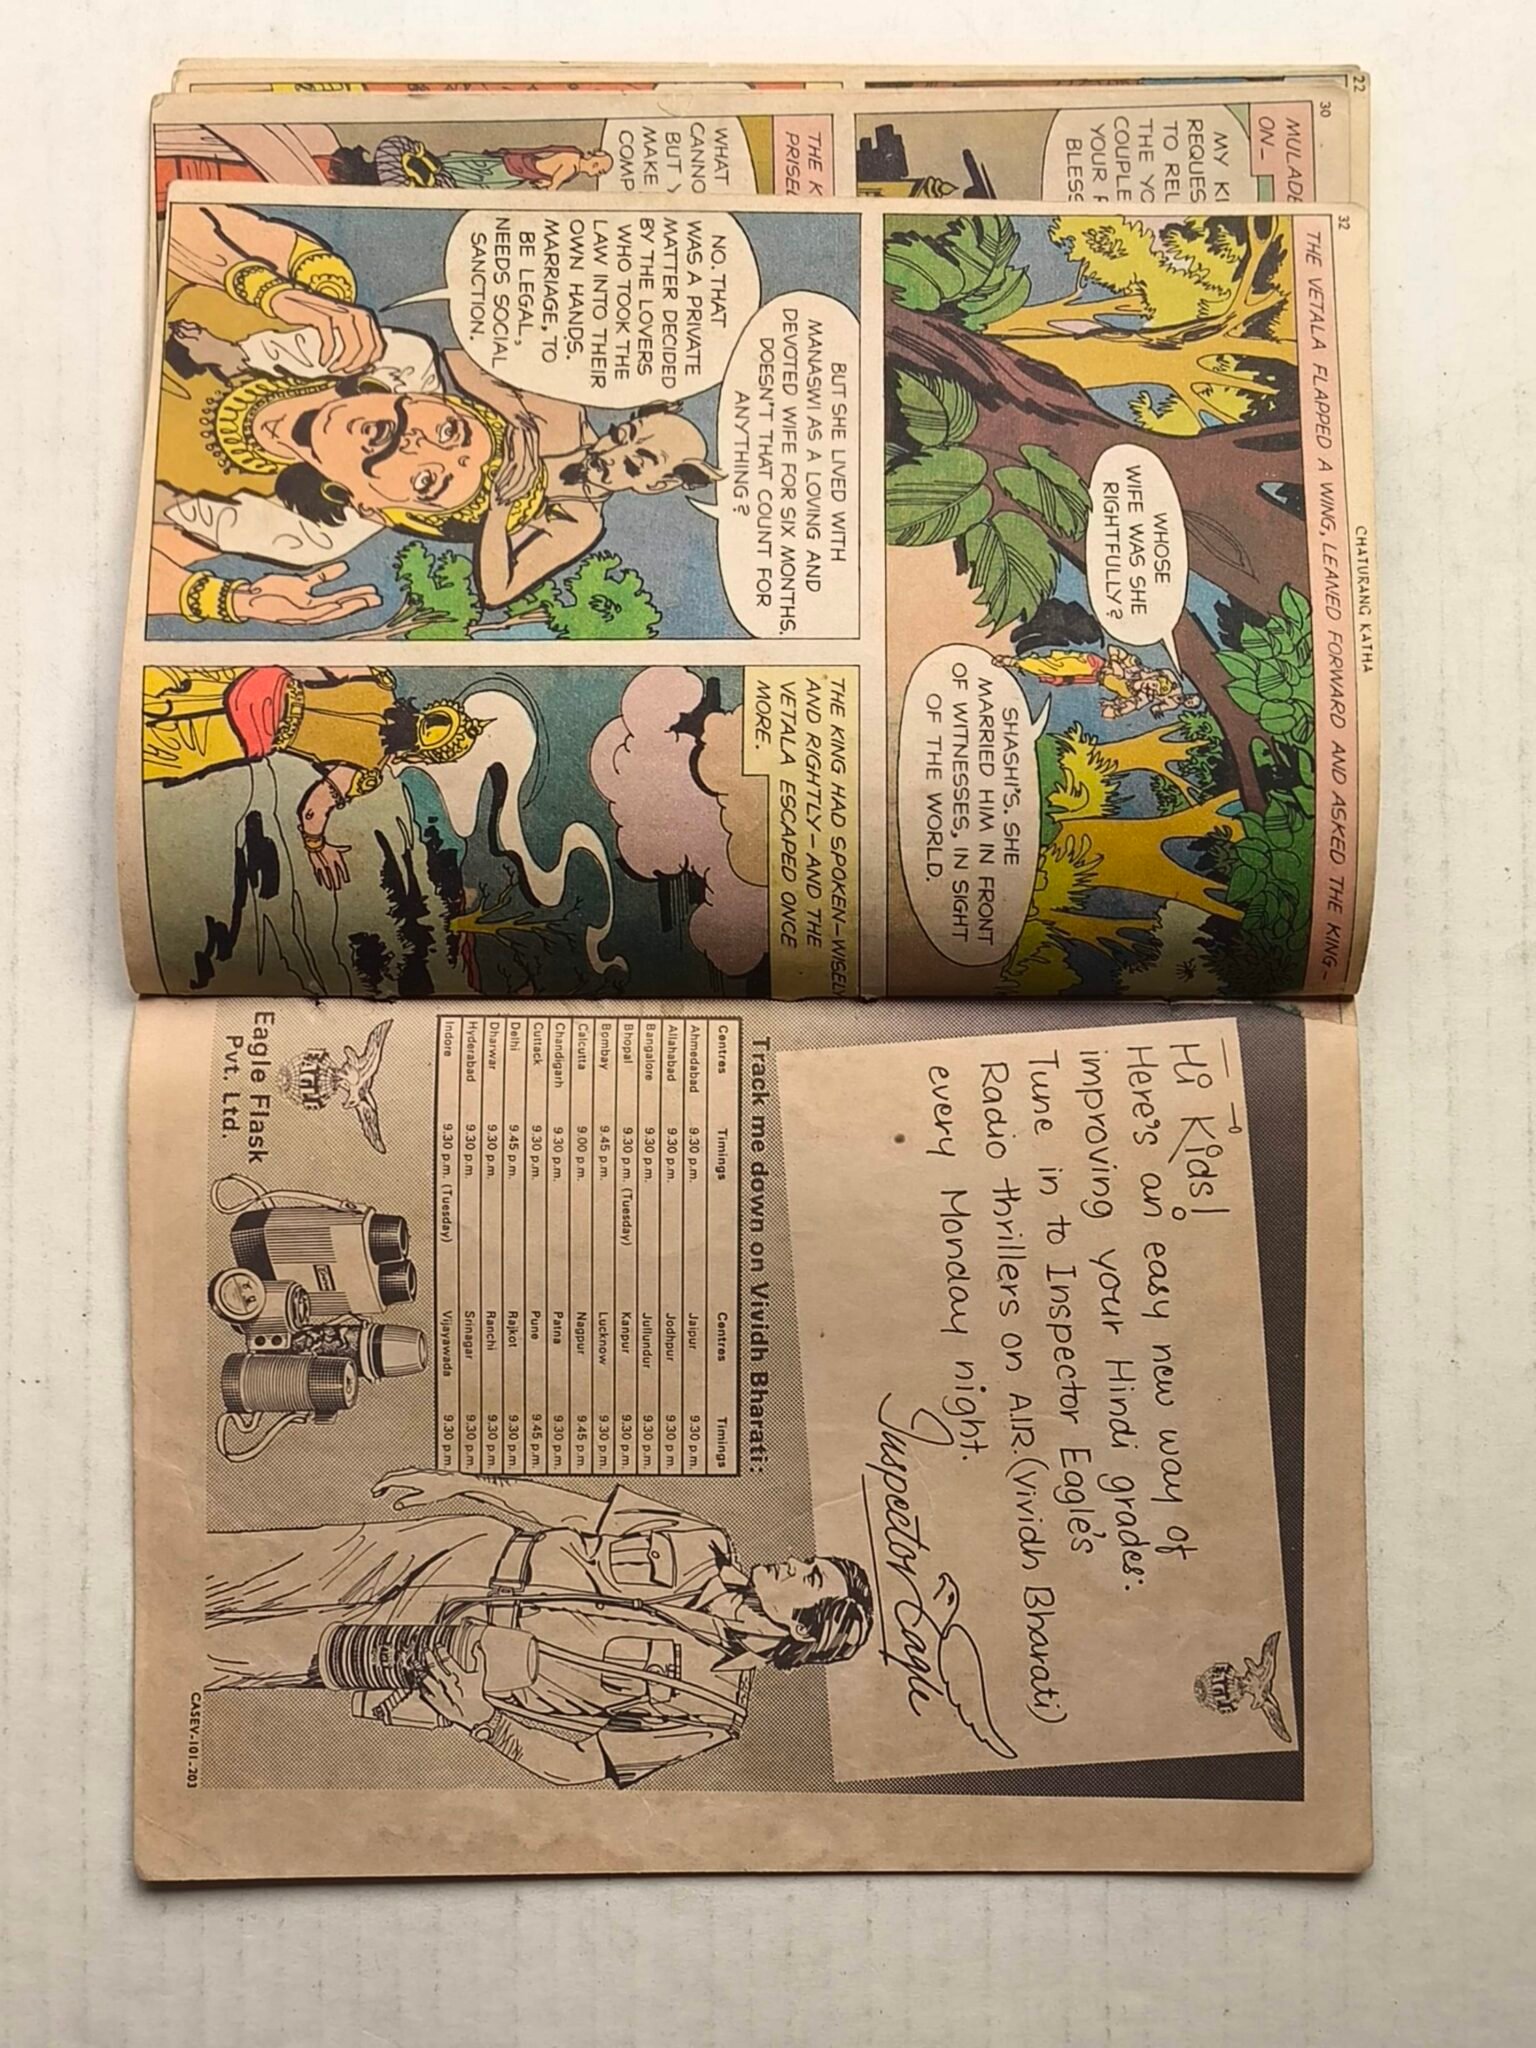 22
30
MULADE
ON—
MY KI
REQUES
TO REL
THE YO
COUPLE
YOUR
BLESS
THE K
PRISE
WHAT
CANNO
BUT
MAKE
COMP
32
CHATURANG KATHA
THE VETALA FLAPPED A WING, LEANED FORWARD AND ASKED THE KING—
WHOSE
WIFE WAS SHE
RIGHTFULLY?
SHASHI'S. SHE
MARRIED HIM IN FRONT
OF WITNESSES, IN SIGHT
OF THE WORLD.
BUT SHE LIVED WITH
MANASWI AS A LOVING AND
DEVOTED WIFE FOR SIX MONTHS.
DOESN'T THAT COUNT FOR
ANYTHING?
NO. THAT
WAS A PRIVATE
MATTER DECIDED
BY THE LOVERS
WHO TOOK THE
LAW INTO THEIR
OWN HANDS.
MARRIAGE, TO
BE LEGAL,
NEEDS SOCIAL
SANCTION.
THE KING HAD SPOKEN—WISELY
AND RIGHTLY—AND THE
VETALA ESCAPED ONCE
MORE.
Hi Kids!
Here's an easy new way of
improving your Hindi grades:
Tune in to Inspector Eagle's
Radio thrillers on A.I.R. (Vividh Bharati)
every Monday night.
Inspector Eagle
Track me down on Vividh Bharati:
Centres Timings Centres Timings
Ahmedabad 9.30 p.m. Jaipur 9.30 p.m.
Allahabad 9.30 p.m. Jodhpur 9.30 p.m.
Bangalore 9.30 p.m. Jullundur 9.30 p.m.
Bhopal 9.30 p.m. (Tuesday) Kanpur 9.30 p.m.
Bombay 9.45 p.m. Lucknow 9.30 p.m.
Calcutta 9.00 p.m. Nagpur 9.45 p.m.
Chandigarh 9.30 p.m. Patna 9.30 p.m.
Cuttack 9.30 p.m. Pune 9.45 p.m.
Delhi 9.45 p.m. Rajkot 9.30 p.m.
Dharwar 9.30 p.m. Ranchi 9.30 p.m.
Hyderabad 9.30 p.m. Srinagar 9.30 p.m.
Indore 9.30 p.m. (Tuesday) Vijayawada 9.30 p.m.
Eagle Flask
Pvt. Ltd.
CASEV-101-203